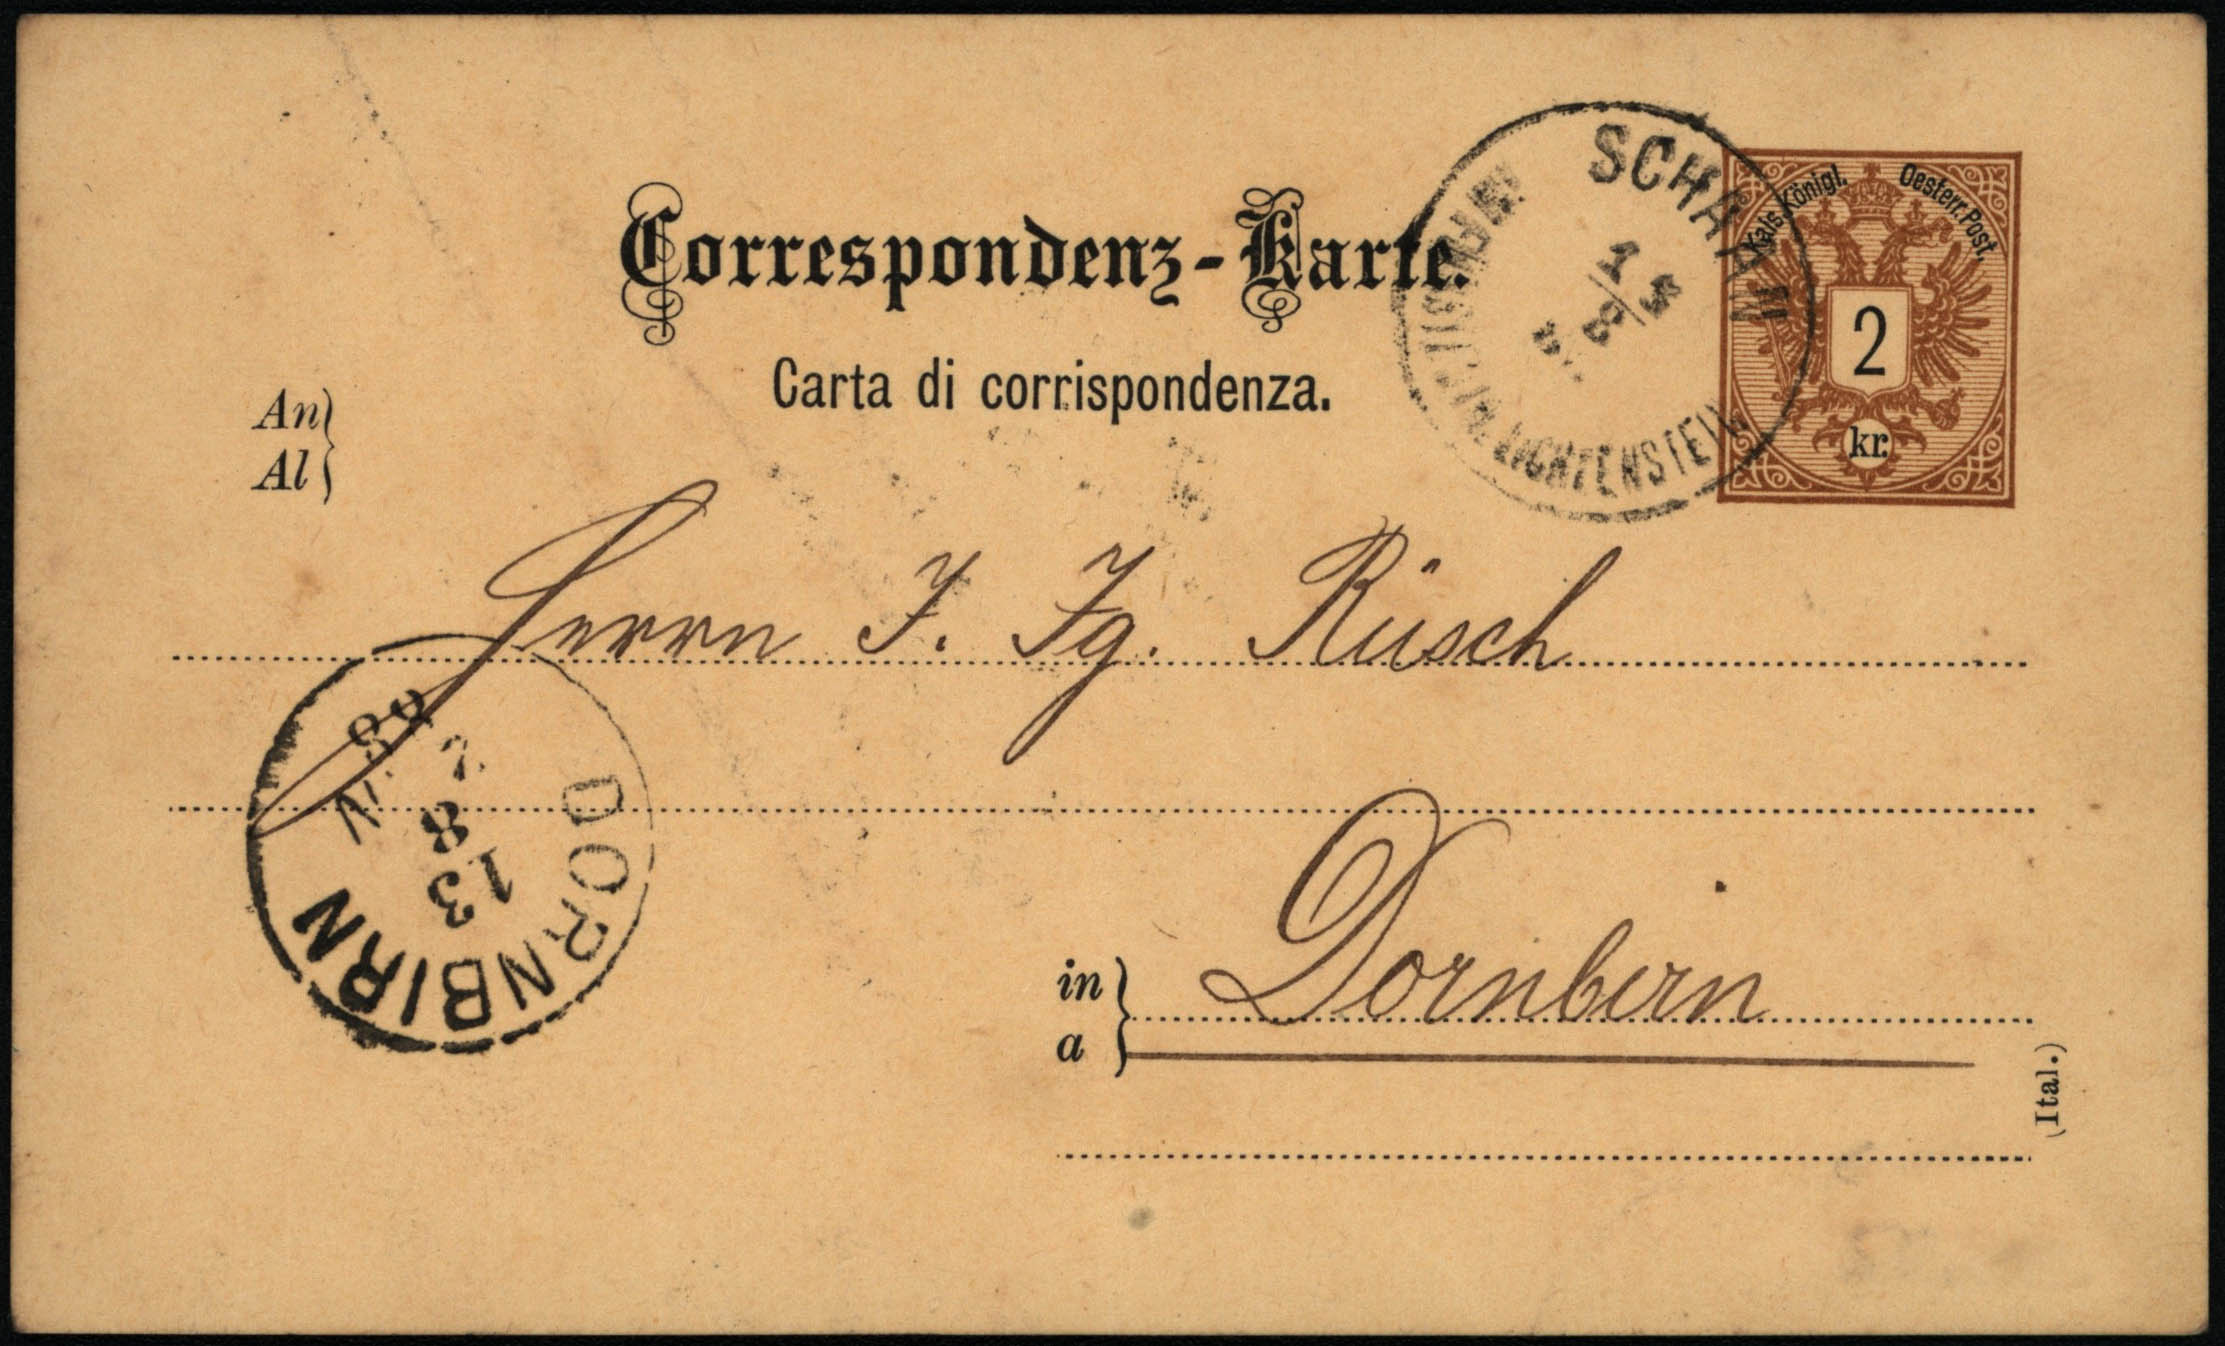 Correspondenz-Karte.
Carta di corrispondenza.
Kais. Königl. Oesterr. Post.
2
kr.
SCHAAN
LICHTENSTEIN
An
Al
Herrn J. Jg. Rüsch
DORNBIRN
13
8
88
in
a
Dornbirn
(Ital.)